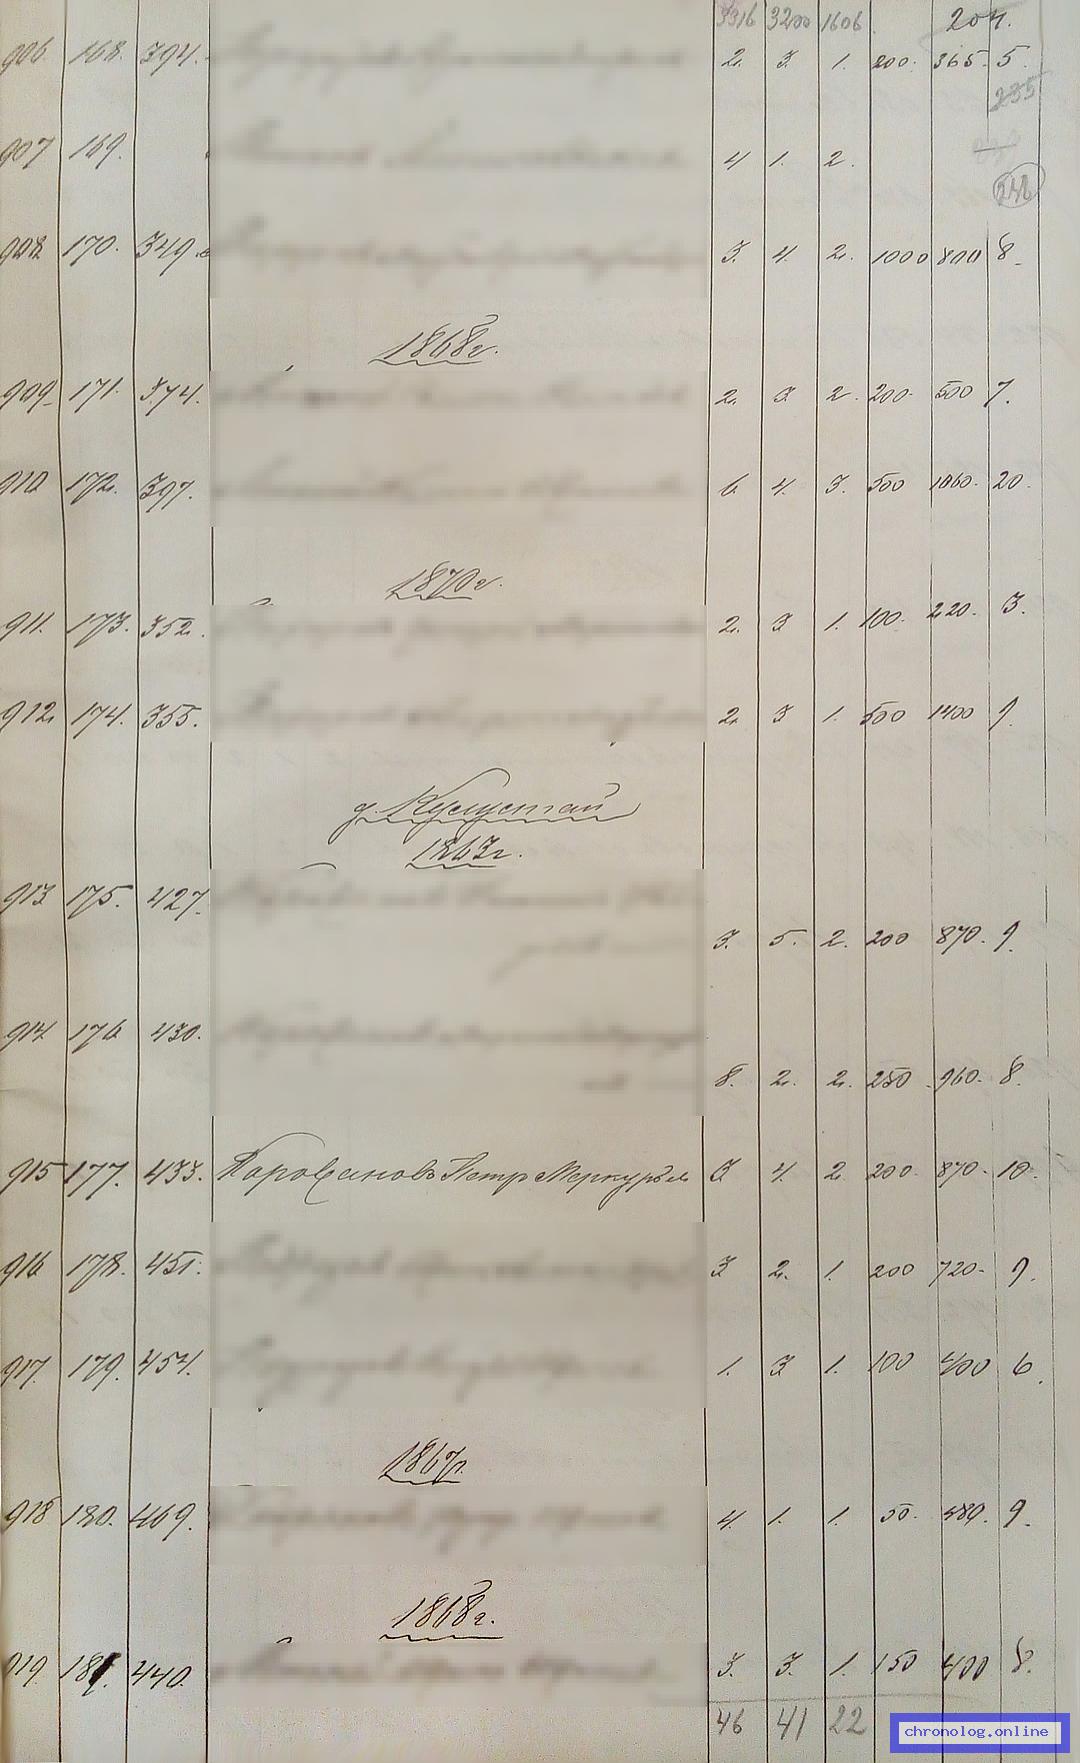 3316 3200 1606 204.
906 168. 394. 2. 3. 1. 200. 365. 5.
235
907 169. 4 1. 2.
908. 170. 349. 3. 4. 2. 1000 800 8.
1868 г.
909. 171. 374. 2. 3 2. 200. 500 7.
910 172. 397. 6 4. 3. 500 1060. 20.
1870 г.
911. 173. 352. 2. 3 1. 100. 220. 3.
912. 174. 355. 2. 3 1. 500 1400 9.
д. Кусустай
1863 г.
913 175. 427.
3. 5. 2. 200 870. 9.
914 176 430.
8. 2. 2. 250 960. 8.
915 177. 433. Паровиновъ Петр Меркурьев 3 4. 2. 200. 870. 10.
916 178. 451. 3 2. 1. 200 720. 9.
917. 179. 454. 1. 3 1. 100 400 6.
1867 г.
918 180. 469. 4. 1. 1. 50. 480. 9.
1868 г.
919. 181. 440. 3. 3. 1. 150 400 8.
46 41 22
chronolog.online